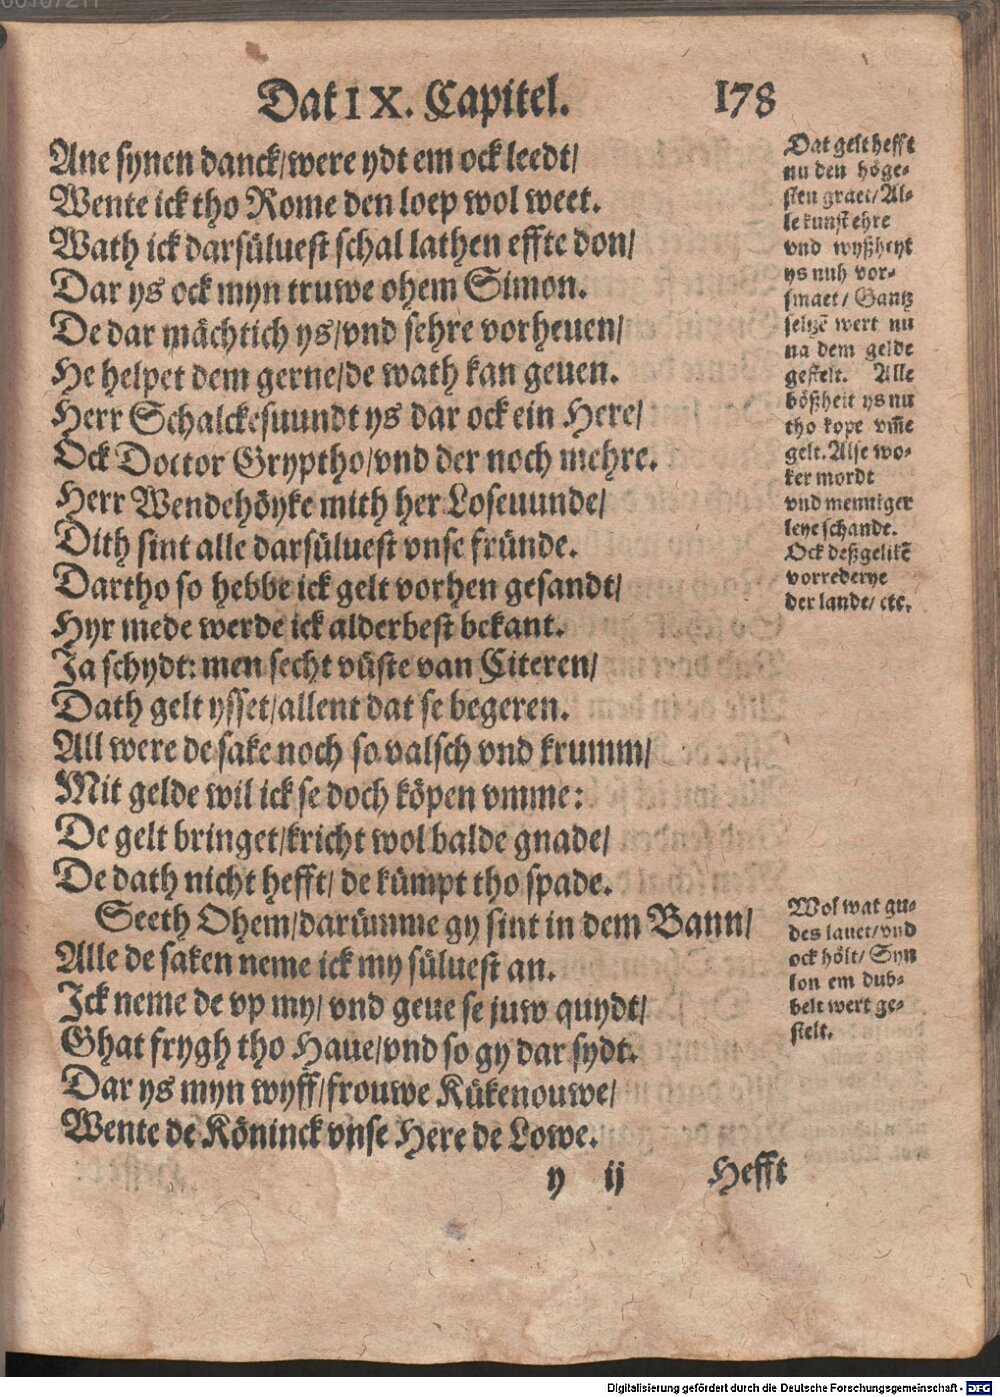 Dat IX. Capitel. 178
Ane synen danck/were ydt em ock leedt/
Wente ick tho Rome den loep wol weet.
Wath ick darsüluest schal lathen effte don/
Dar ys ock myn truwe ohem Simon.
De dar mächtich ys/vnd sehre vorheuen/
He helpet dem gerne/de wath kan geuen.
Herr Schalckesuundt ys dar ock ein Here/
Ock Doctor Gryptho/vnd der noch mehre.
Herr Wendehöyke mith her Loseuunde/
Dith sint alle darsüluest vnse fründe.
Dartho so hebbe ick gelt vorhen gesandt/
Hyr mede werde ick alderbest bekant.
Ja schydt: men secht vüste van Citeren/
Dath gelt ysset/allent dat se begeren.
All were de sake noch so valsch vnd krumm/
Mit gelde wil ick se doch köpen vmme:
De gelt bringet/kricht wol balde gnade/
De dath nicht hefft/ de kümpt tho spade.
Seeth Ohem/darümme gy sint in dem Bann/
Alle de saken neme ick my süluest an.
Ick neme de vp my/ vnd geue se juw quydt/
Ghat frygh tho Haue/vnd so gy dar sydt.
Dar ys myn wyff/frouwe Kükenouwe/
Wente de Köninck vnse Here de Lowe.
y ij Hefft
Dat gelt hefft
nu den höge-
sten graet/ Al-
le kunst ehre
vnd wyßheyt
ys nuh vor-
smaet/ Gantz
seltzē wert nu
na dem gelde
gestelt. Alle
bößheit ys nu
tho kope vm̄e
gelt. Alse wo-
ker mordt
vnd menniger
leye schande.
Ock deßgelikē
vorrederye
der lande/ etc.
Wol wat gu-
des lauet/vnd
ock hölt/ Syn
lon em dub-
belt wert ge-
stelt.
Digitalisierung gefördert durch die Deutsche Forschungsgemeinschaft - DFG